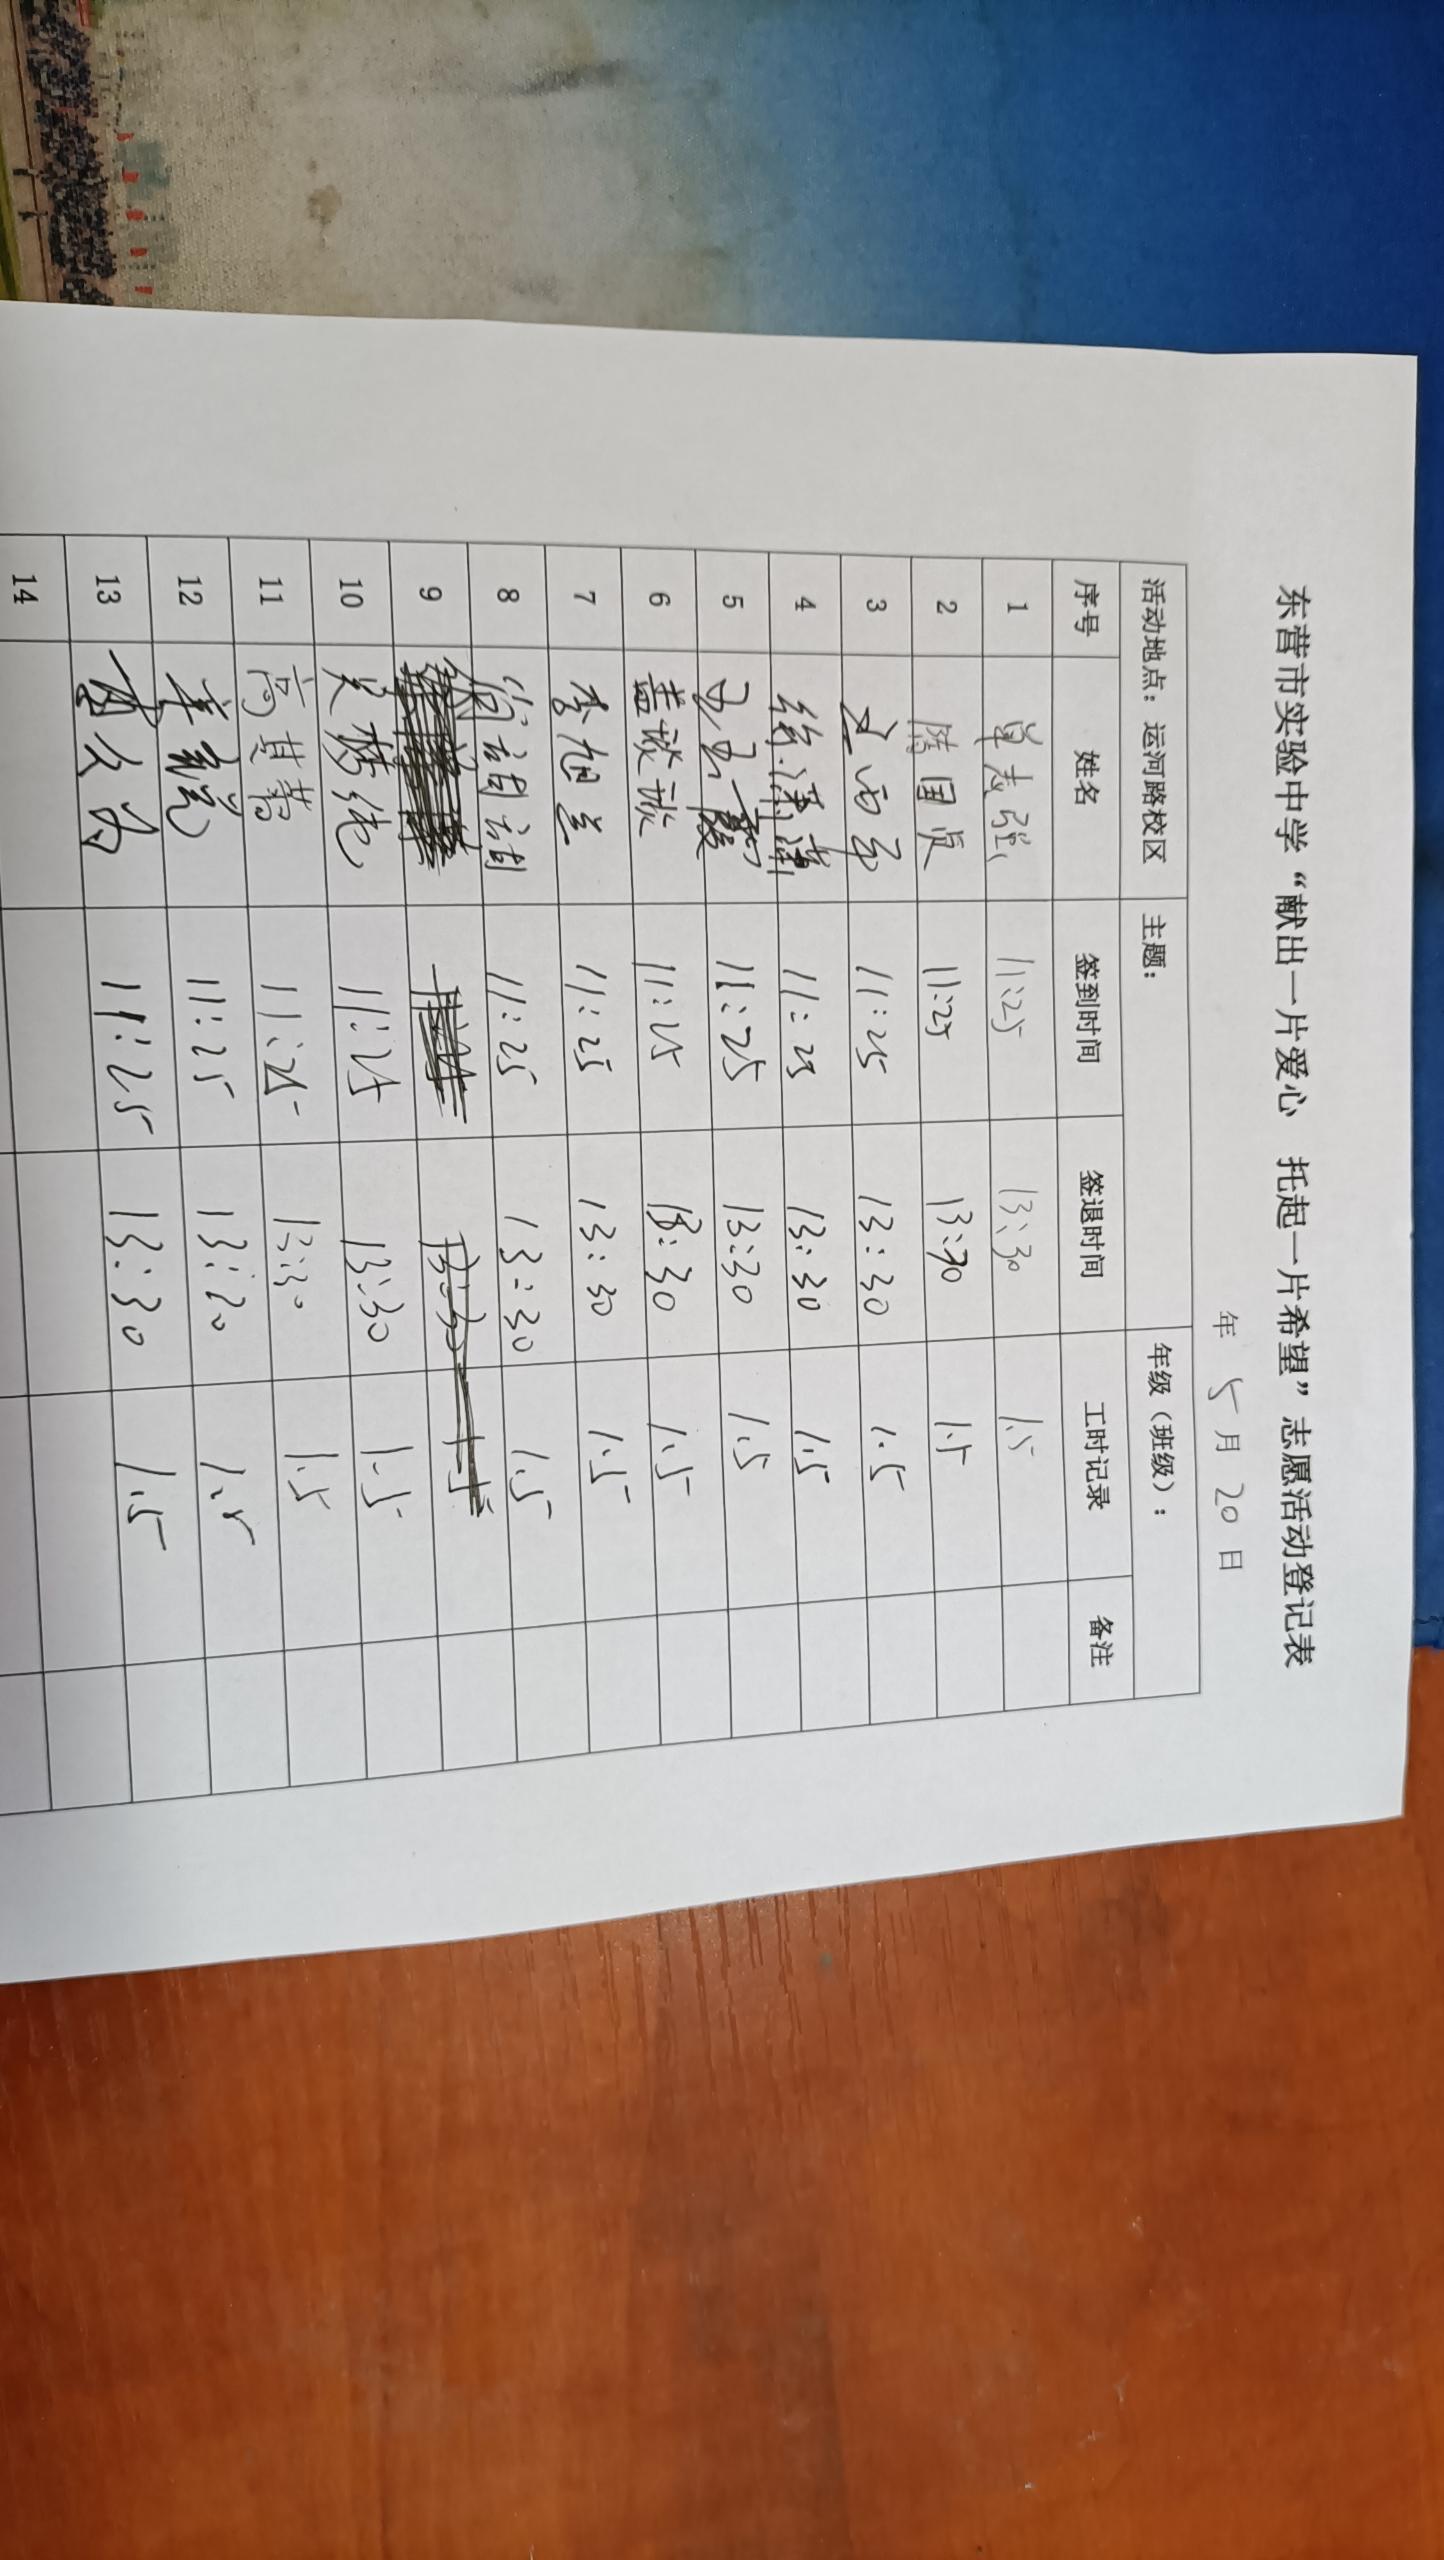 东营市实验中学“献出一片爱心 托起一片希望”志愿活动登记表
年 5 月 20 日
活动地点：运河路校区 主题： 年级（班级）：
序号 姓名 签到时间 签退时间 工时记录 备注
1 单志强 11:25 13:30 1.5
2 隋国贞 11:25 13:30 1.5
3 11:25 13:30 1.5
4 徐潇潇 11:25 13:30 1.5
5 11:25 13:30 1.5
6 盖谈谈 11:25 13:30 1.5
7 李旭兰 11:25 13:30 1.5
8 11:25 13:30 1.5
9 13:30 1.5
10 吴梦纯 11:25 13:30 1.5
11 高其菁 11:25 13:30 1.5
12 11:25 13:30 1.5
13 11:25 13:30 1.5
14